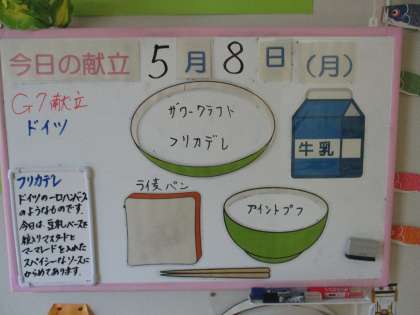 今日の献立 5月8日(月)
G7献立
ドイツ
ザワークラフト
フリカデレ
牛乳
ライ麦パン
アイントプフ
フリカデレ
ドイツの一口ハンバーグ
のようなものです。
今日は、豆乳ベースを
粒入りマスタードと
マーマレードを入れた
スパイシーなソースに
からめてあります。